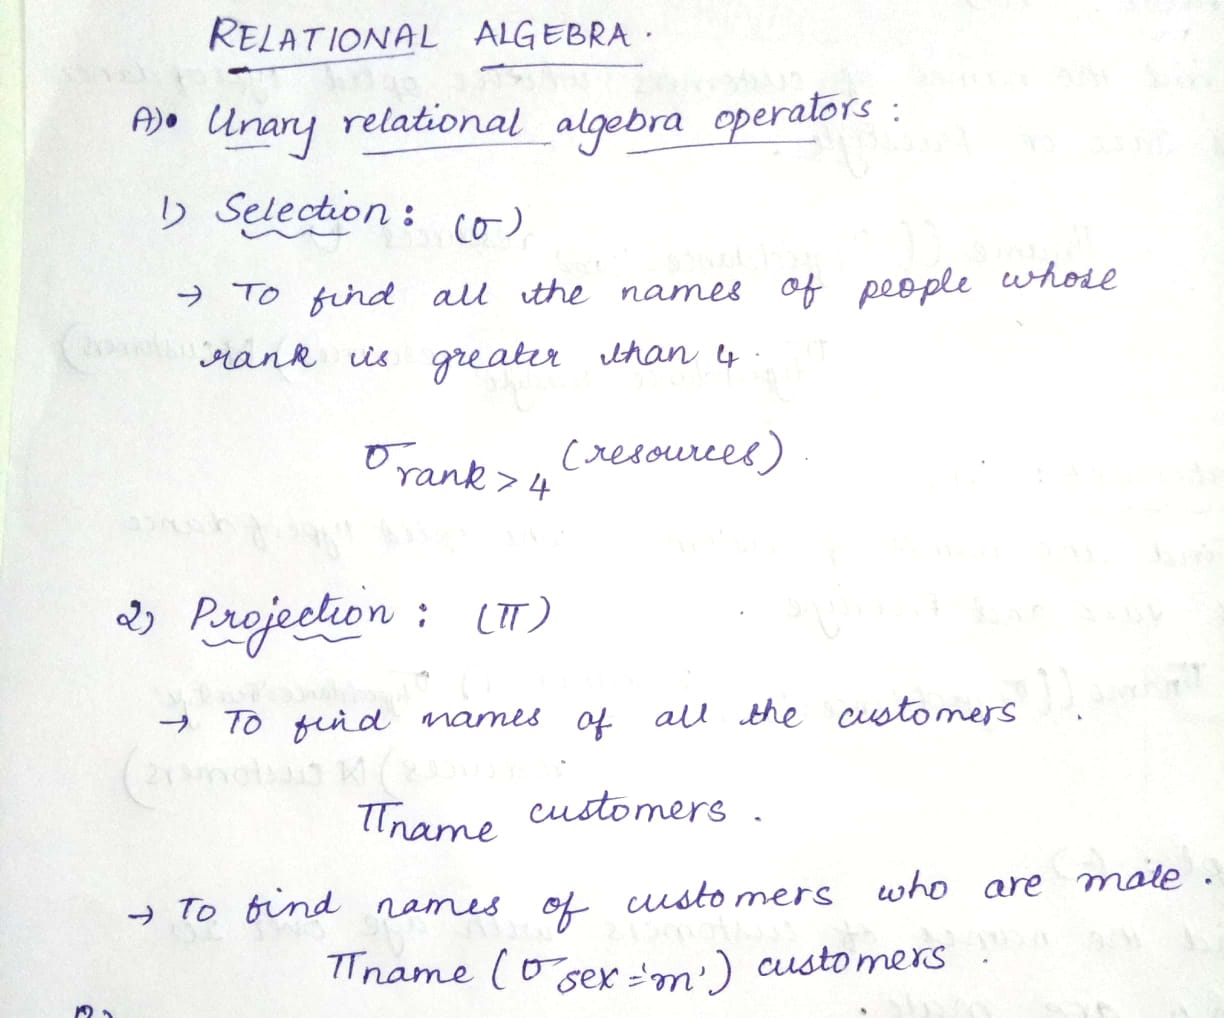 RELATIONAL ALGEBRA.
A)• Unary relational algebra operators :
1) Selection : (σ)
→ To find all the names of people whose
rank is greater than 4.
σ rank > 4 (resources).
2) Projection : (π)
→ To find names of all the customers .
π name customers .
→ To find names of customers who are male .
π name (σ sex = 'm') customers .